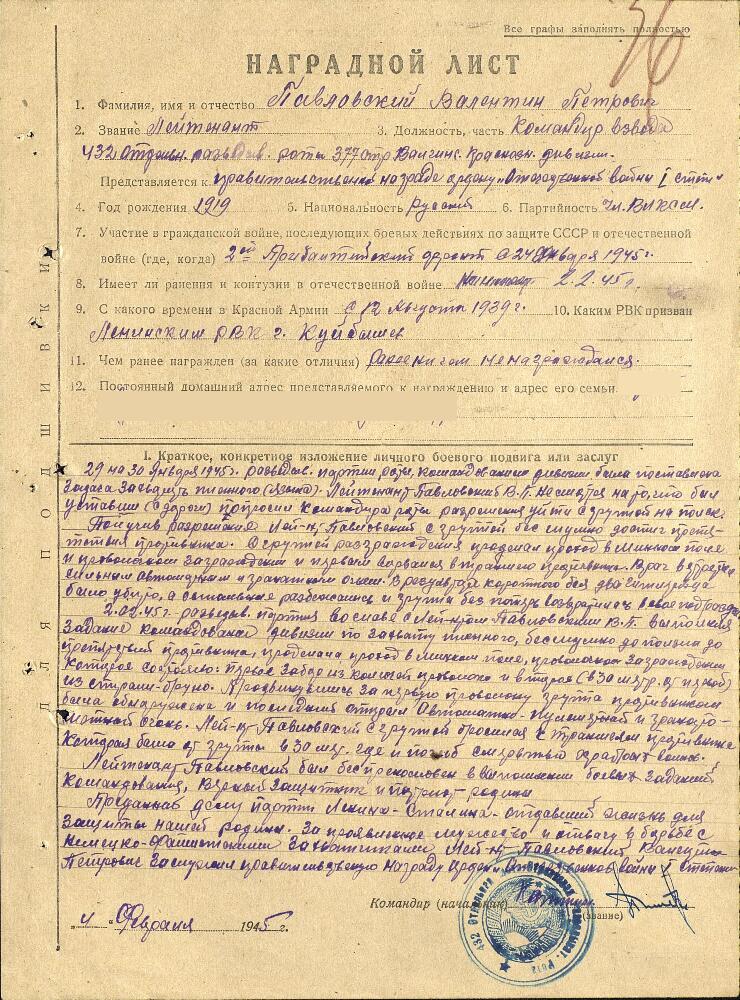 Все графы заполнять полностью
НАГРАДНОЙ ЛИСТ
1. Фамилия, имя и отчество Павловский Валентин Петрович
2. Звание Лейтенант 3. Должность, часть Командир взвода
432 отдельн. развед. роты 377 стр. Валгинс. Краснозн. дивизии.
Представляется к правительственной награде ордену „Отечественной войны I степ"
4. Год рождения 1919 5. Национальность Русский 6. Партийность Чл. ВЛКСМ.
7. Участие в гражданской войне, последующих боевых действиях по защите СССР и отечественной
войне (где, когда) 2ой Прибалтийский фронт с 24 Января 1945 г.
8. Имеет ли ранения и контузии в отечественной войне 2.2.45 г.
9. С какого времени в Красной Армии с 12 Августа 1939 г. 10. Каким РВК призван
Ленинским РВК г. Куйбышев
11. Чем ранее награжден (за какие отличия) Ранее ни чем не награждался.
12. Постоянный домашний адрес представляемого к награждению и адрес его семьи
I. Краткое, конкретное изложение личного боевого подвига или заслуг
29 на 30 Января 1945 г. развед. партии роты, командованием дивизии была поставлена
задача захватить пленного (языка). Лейтенант Павловский В.П. Несмотря на то, что был
уставши (с дороги) попросил командира роты разрешения уйти с группой на поиск.
Получив разрешение Лей-нт Павловский с группой бесшумно достиг препят-
ствия противника. С группой разграждения проделал проход в минном поле
и проволочном заграждении и первым ворвался в траншею противника. Враг встретил
сильным автоматным и гранатным огнем. В результате короткого боя два гитлеровца
было убито, а остальные разбежались и группа без потерь возвратилась в свое подразд.
2.02.45 г. развед. партия во главе с Лей-нтом Павловским В.П. выполняя
задание командования дивизии по захвату пленного, бесшумно доползла до
препятствий противника, проделала проход в минном поле, проволочном заграждении
которое состояло: первое забор из колючей проволоки и второе (в 30 метр. от первой)
из спирали-Бруно. Продвинувшись за первую проволоку группа противником
была обнаружена и последний открыл Автоматно-пулеметный и гранато-
метный огонь. Лей-нт Павловский с группой бросился к траншеям противника
которая была от группы в 30 мт. где и погиб смертью храброго воина.
Лейтенант Павловский был беспрекословен в выполнении боевых заданий
командования, верный защитник и патриот родины
Преданный делу партии Ленина-Сталина - отдавший жизнь для
защиты нашей родины. За проявленное мужество и отвагу в борьбе с
немецко-фашистскими захватчиками Лей-нт Павловский Валентин
Петрович заслужил правительственную награду орден „Отечественной войны I степени
Командир (начальник) Капитан
(звание)
„4" Февраля 1945 г.
432 ОТДЕЛЬНАЯ РОТА
ДЛЯ ПОДШИВКИ